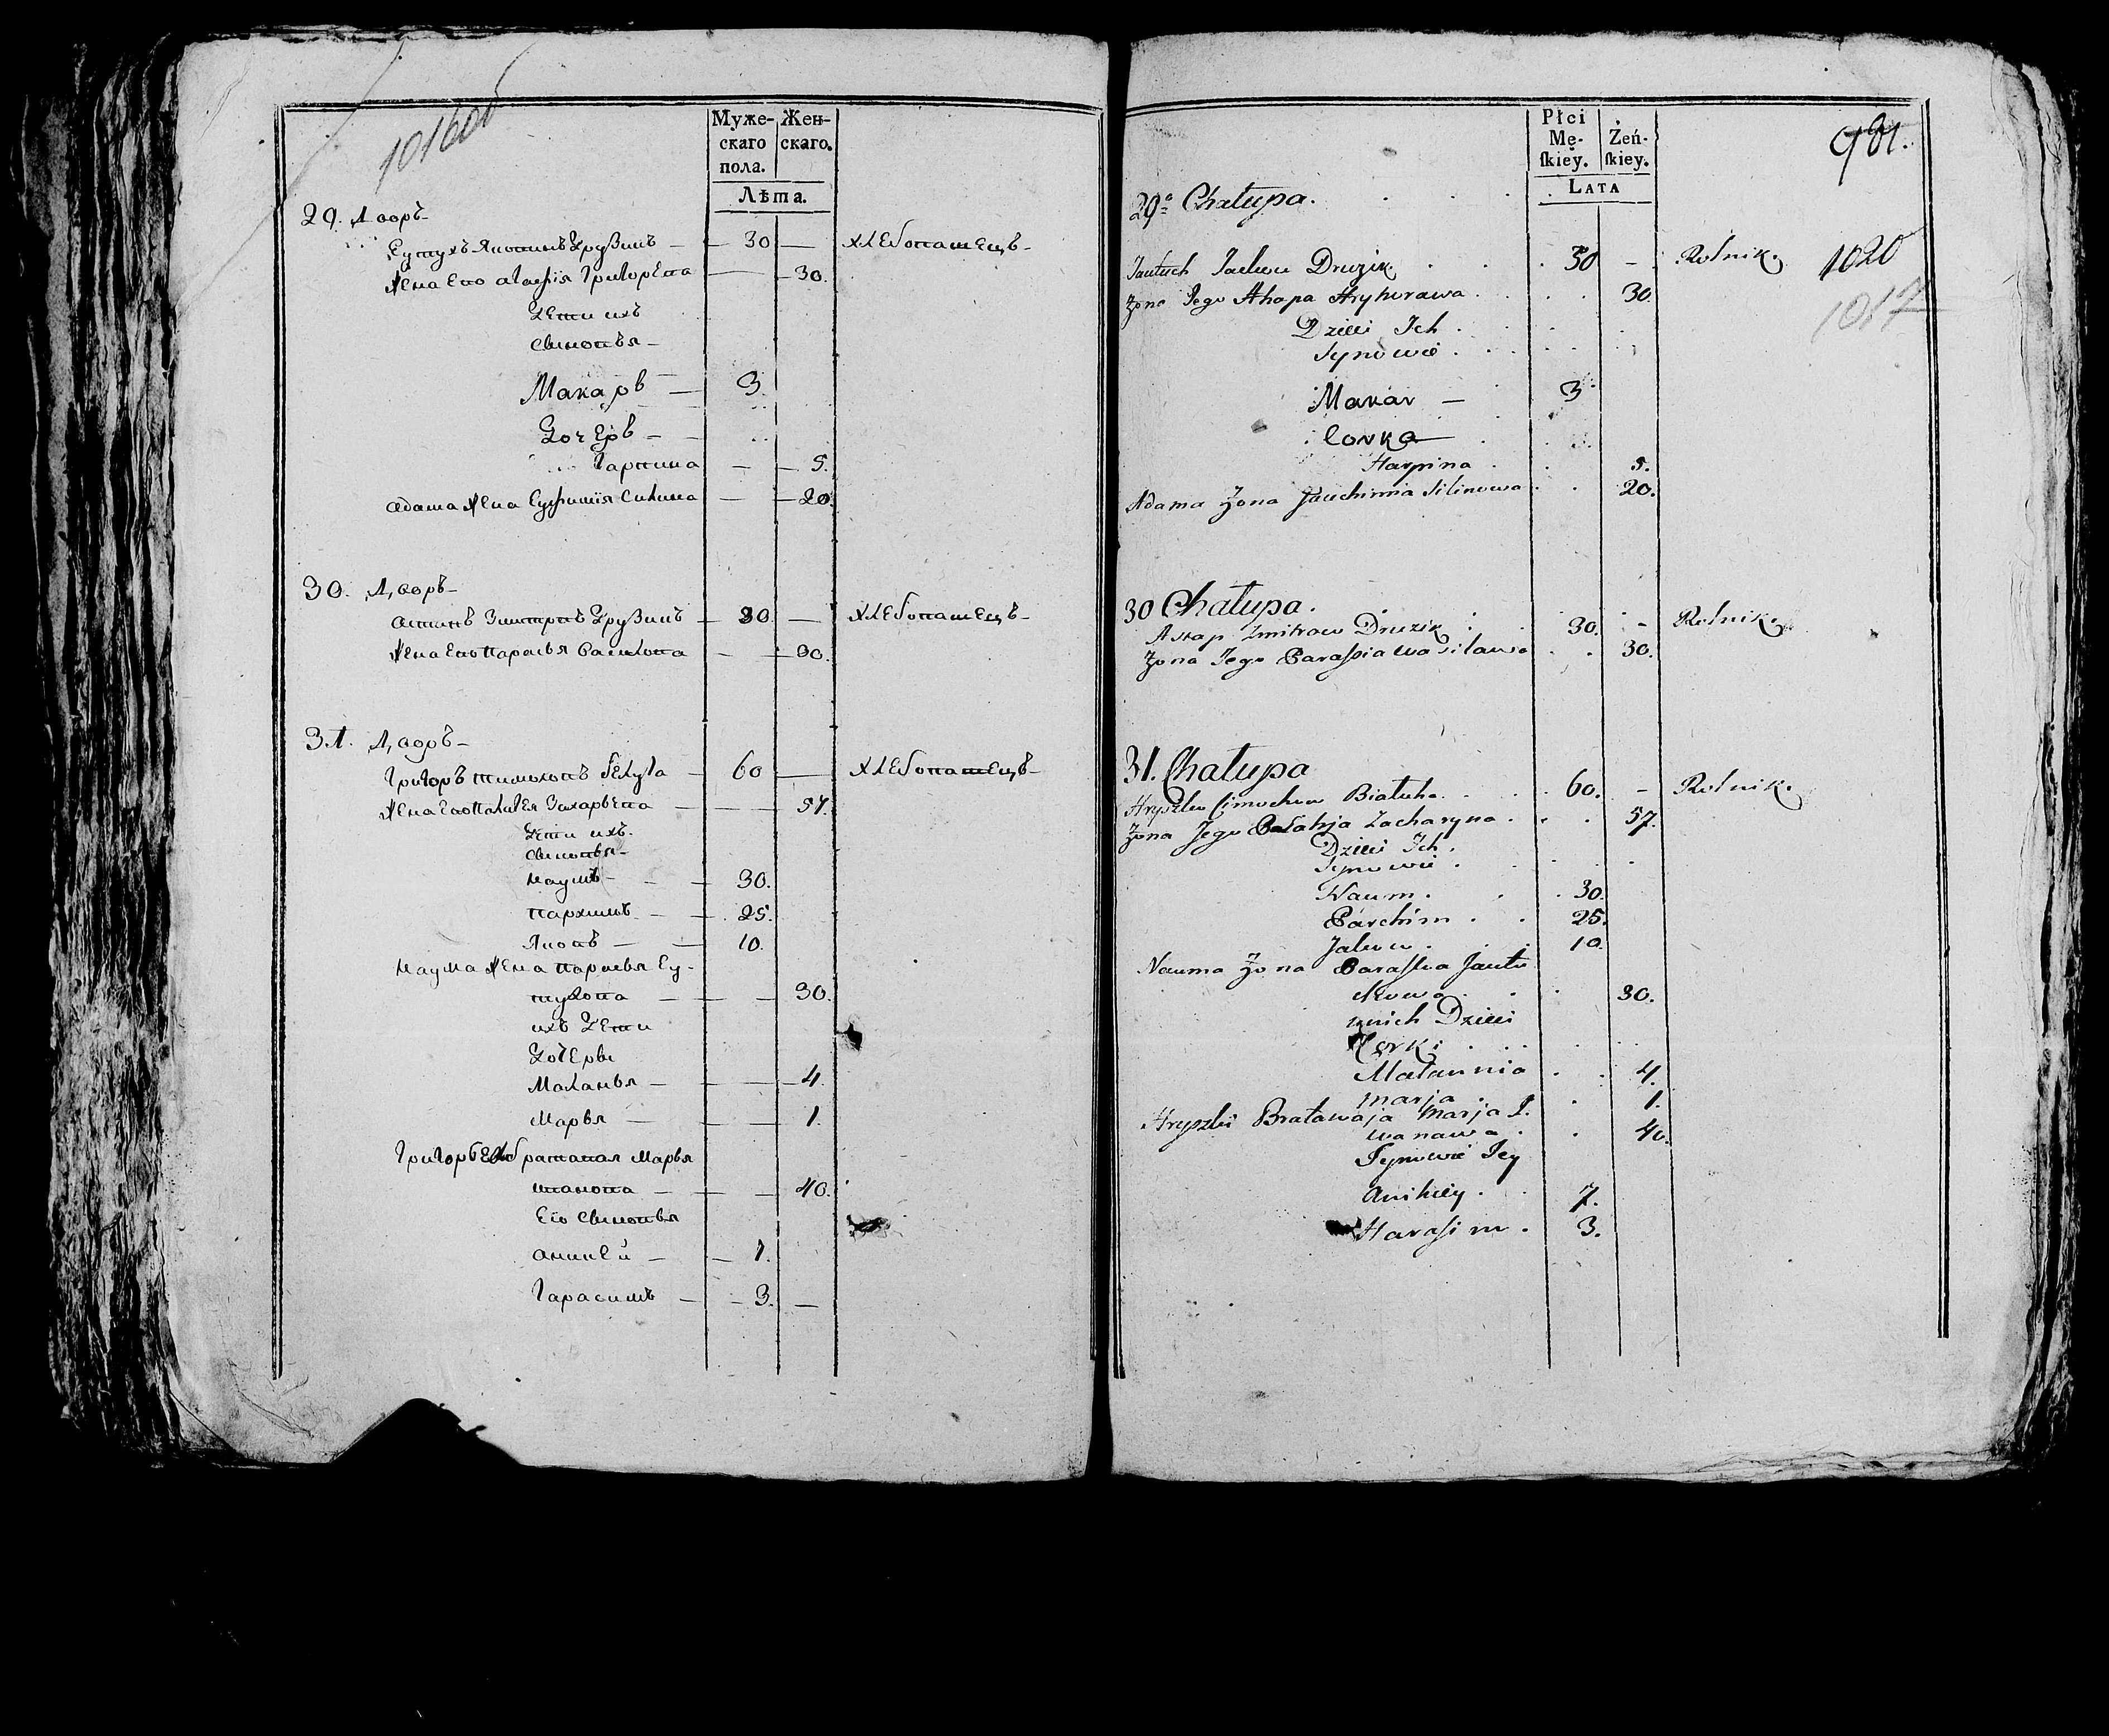 1016 об
Муже- Жен-
скаго скаго.
пола.
Лѣта.
29. Дворъ
Еутухъ Яковлевъ Друзикъ — 30 — хлебопашецъ
Жена Его Агафія Григорева — 30.
Дети ихъ
Сыновья
Макаръ — 3.
Дочеръ
Гарпина — 5.
Адама Жена Еуфимія Силина — 20.
30. Дворъ
Дмитровъ Друзикъ — 30 — хлебопашецъ
Жена Его Парасья Василова — 30.
31. Дворъ
Григоръ Тимохопъ Белуга — 60 — хлебопашецъ
Жена Его Палагея Захарьева — 57.
Дети ихъ
Сыновья
Наумъ — 30.
Пархимъ — 25.
Яковъ — 10.
Наума Жена Парасья Еу-
тухова — 30.
ихъ Дети
Дочеры
Маланья — 4.
Марья — 1.
братавая Марья
Иванова — 40.
Его Сыновья
Аникей — 7.
Гарасимъ — 3. —
Płci
Mę- Żeń-
ſkiey. ſkiey.
LATA
981.
1020
1017
29a Chałupa.
Jautuch Jakow Druzik. 30 - Rolnik.
Żona Jego Ahapa Hryhorawa 30.
Dzieci Ich
Synowie
Makar — 3
Corka
Harpina 5.
Adama Żona Jauchimia Silinowa 20.
30 Chałupa.
Astap Zmitrow Druzik 30. - Rolnik.
Żona Jego Paraſkia Wasilawa 30.
31. Chałupa
Hryszko Cimochow Białuha 60. - Rolnik.
Żona Jego Pałahja Zacharyna 57.
Dzieci Ich
Synowie
Naum. 30.
Parchim 25.
Jakow. 10.
Nauma Żona Paraſka Jautu
chowa 30.
u nich Dzieci
Corki
Małannia 4.
Marja 1.
Hryszki Bratawaja Marja I.
wanawa 40.
Synowie Jey
Anikiey. 7.
Harasim. 3.